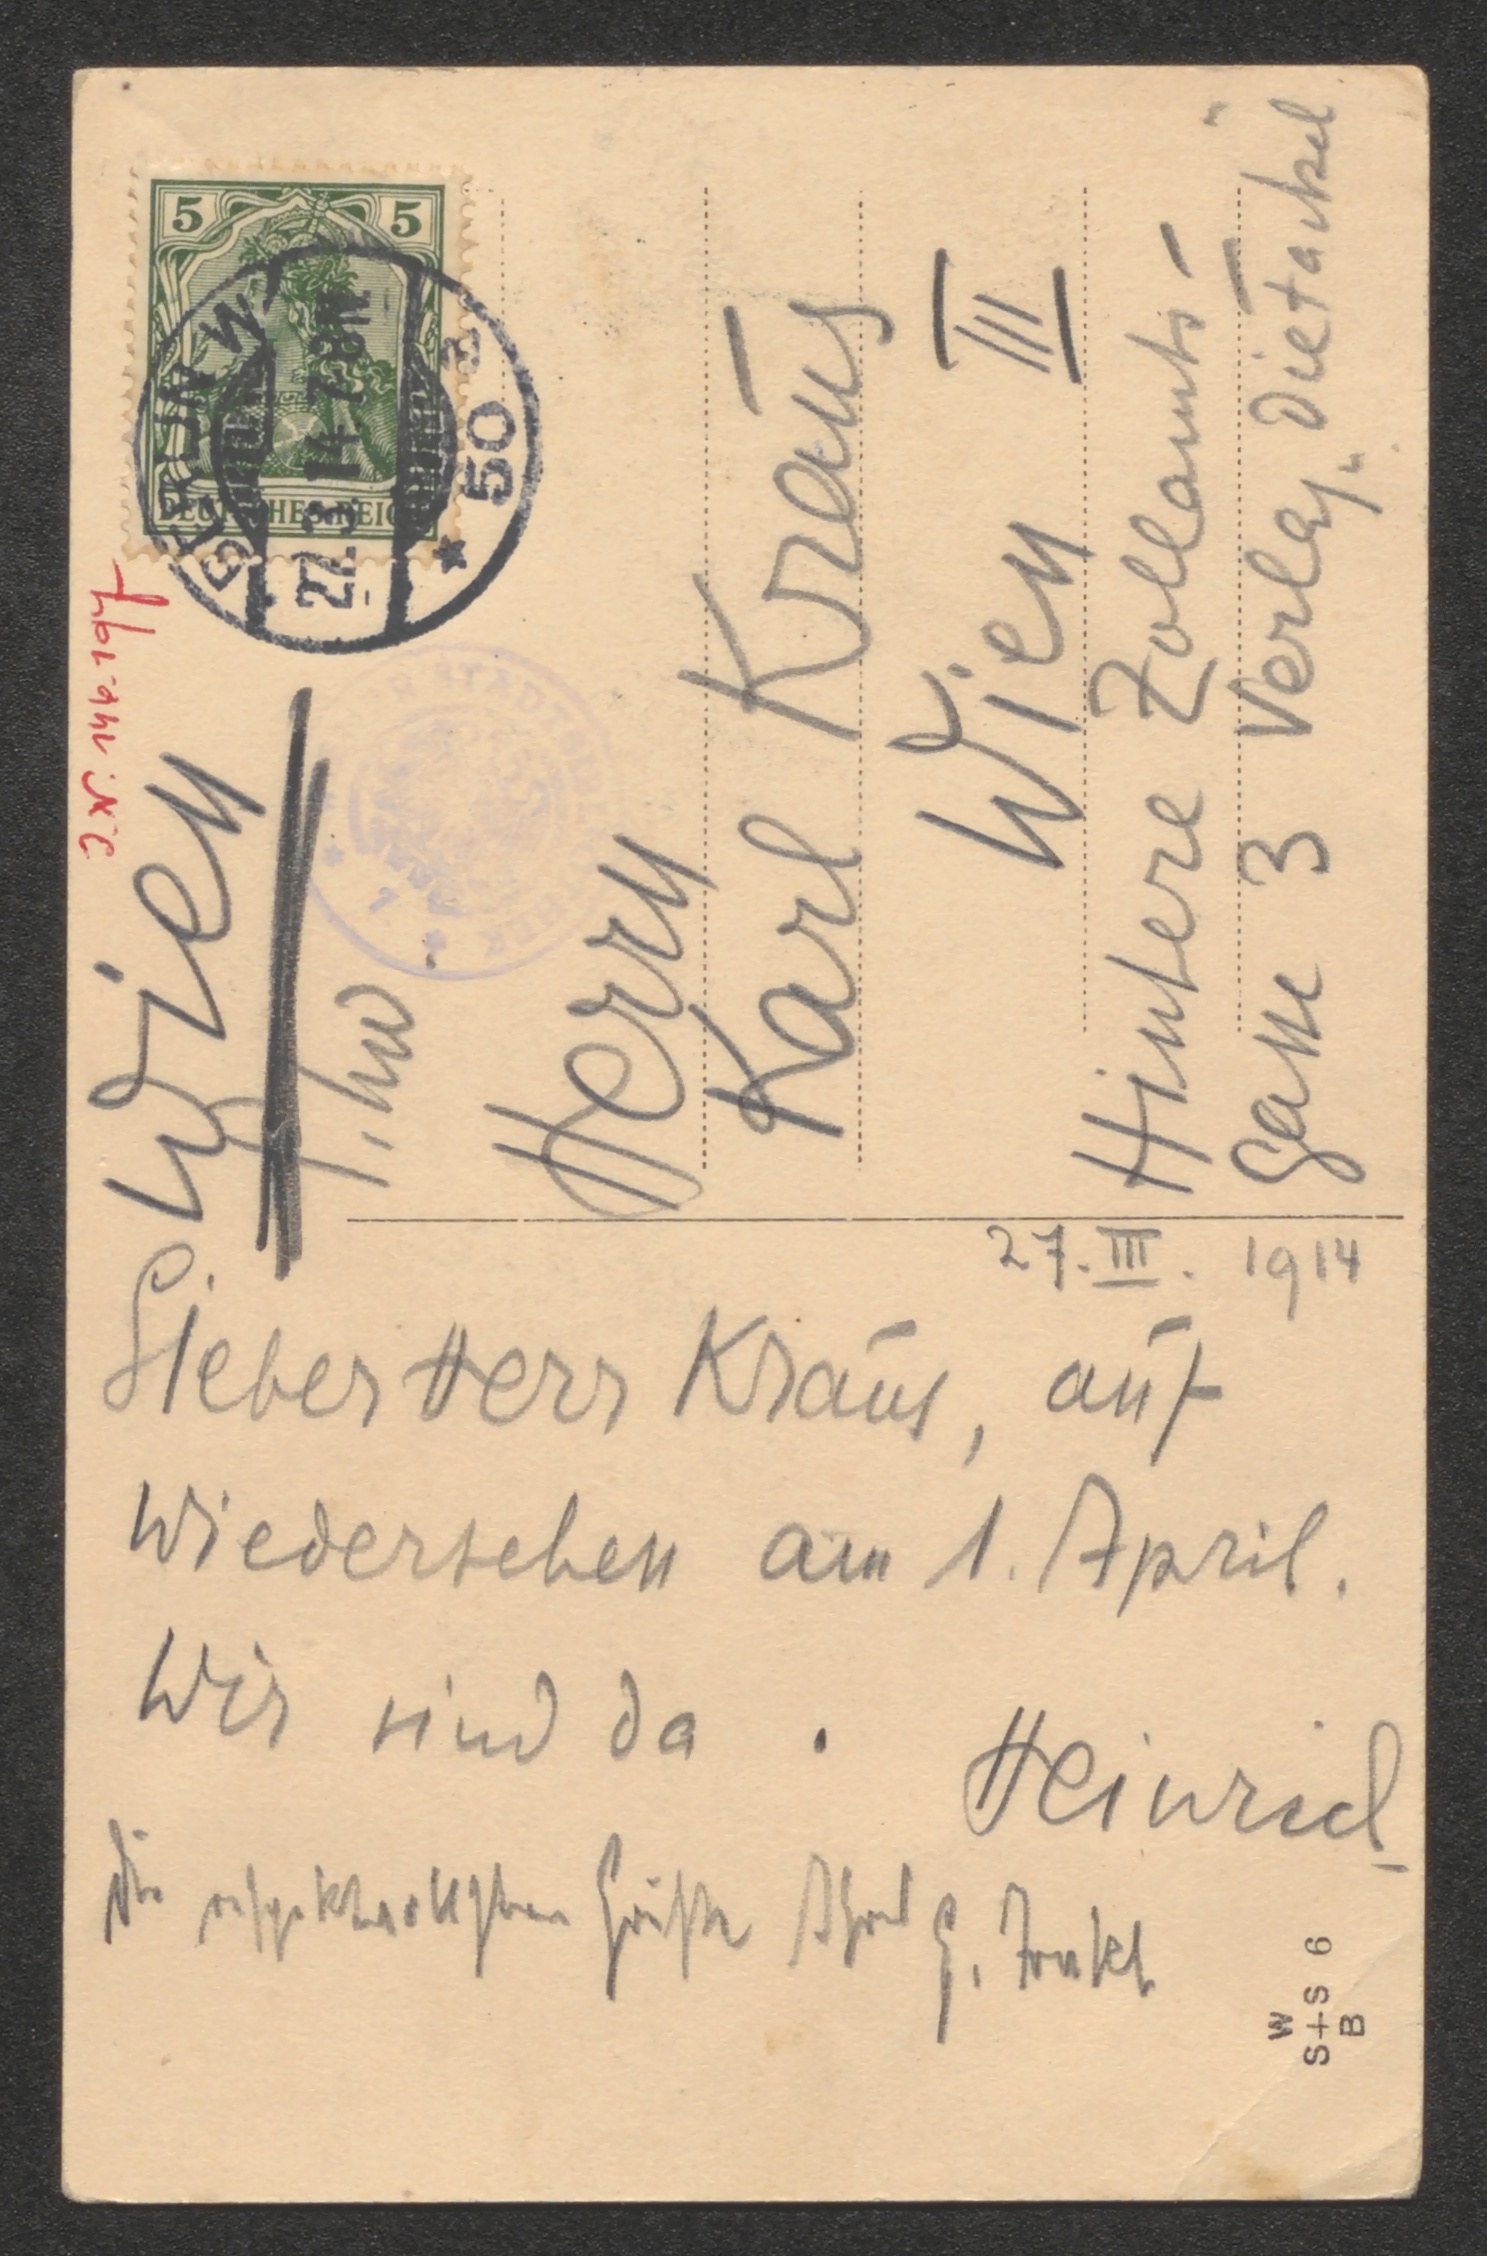 5 5
DEUTSCHES REICH
BERLIN W
27.3.14 7-8N.
* 50 a
Wien
Herrn
Karl Kraus
Wien III
Hintere Zollamts-
gasse 3 Verlag „Die Fackel"
27. III. 1914
Lieber Herr Kraus, auf
Wiedersehen am 1. April.
Wir sind da. Heinrich
Die Grüße Ihres
W
S+S 6
B